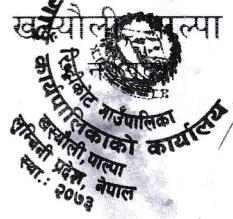 खस्यौली, पाल्पा
रिब्दीकोट गाउँपालिका
कार्यपालिकाको कार्यालय
खस्यौली, पाल्पा
लुम्बिनी प्रदेश, नेपाल
स्था.: २०७३